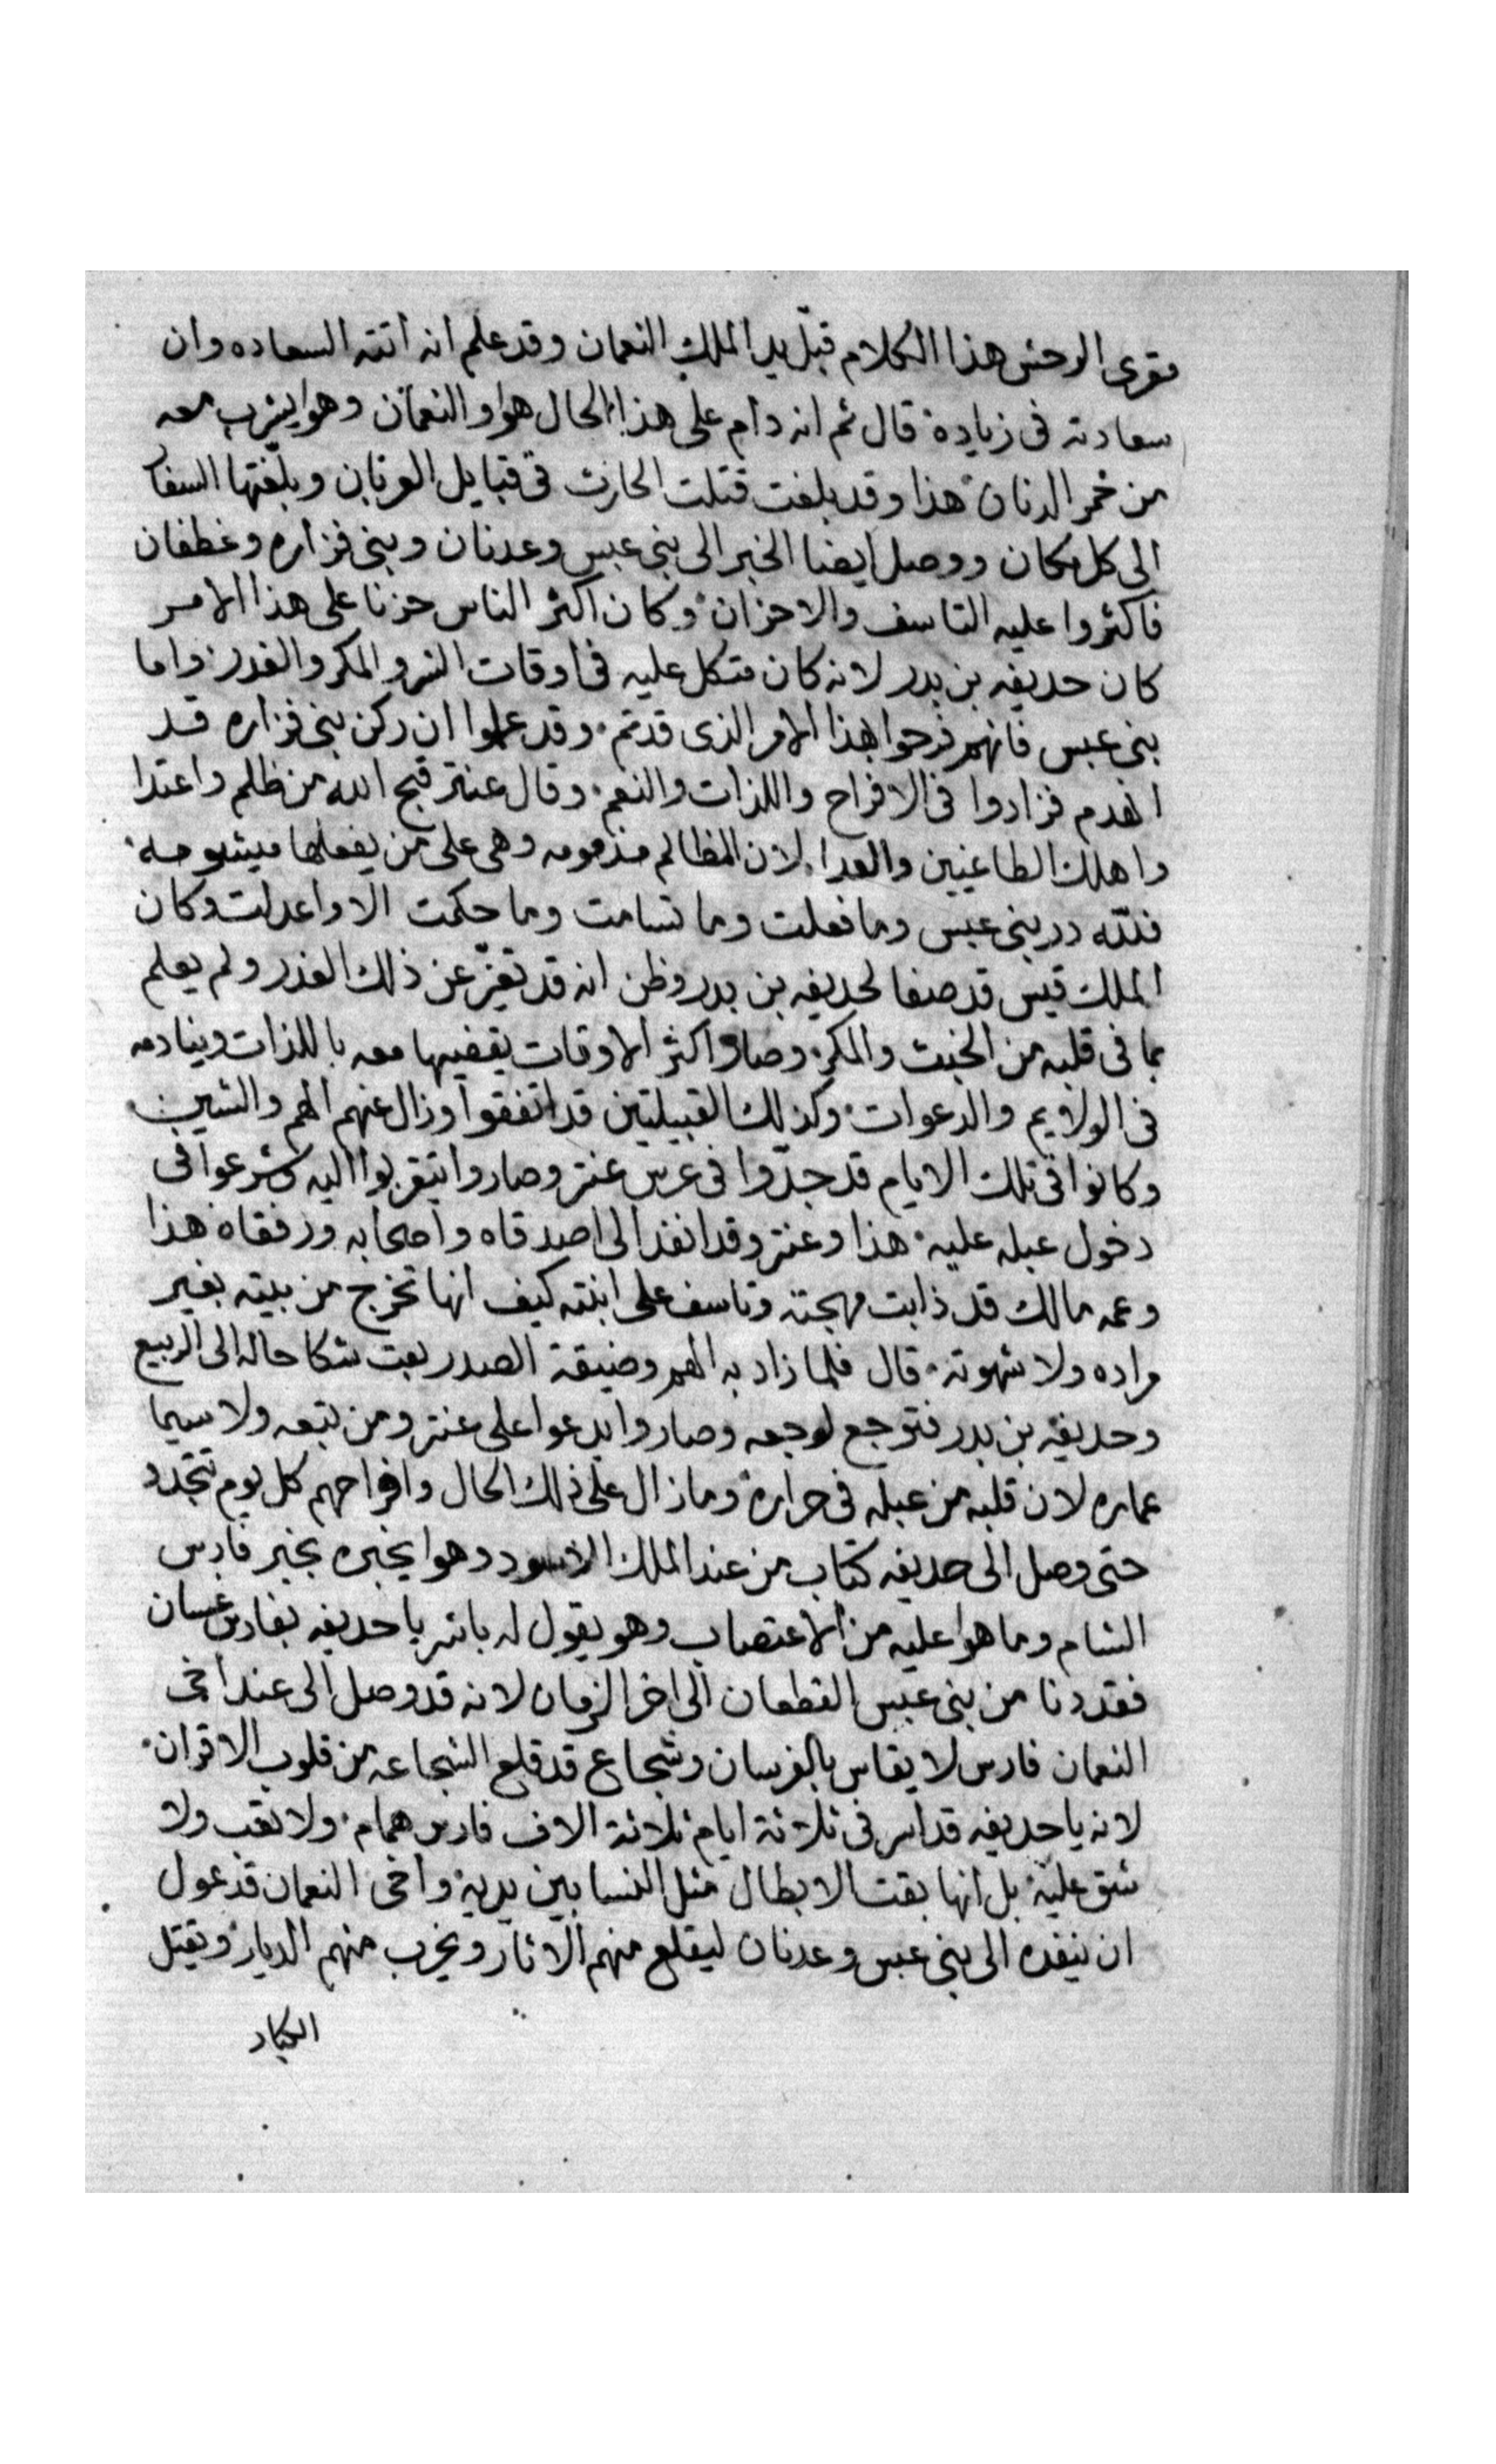 مقرى الوحش هذا الكلام قبّل يد الملك النعمان وقد علم انه اتته السعاده وان
سعادته فى زيادة قال ثم انه دام على هذا الحال هوا والنعمان وهوا يشرب معه
من خمر الدنان هذا وقد بلغت قتلت الحارث فى قبايل العربان وبلّغتها السفا
الى كل مكان ووصل ايضا الخبر الى بنى عبس وعدنان وبنى فزاره وغطفان
فاكثروا عليه التاسف والاحزان وكان اكثر الناس حزنا على هذا الامر
كان حديفه بن بدر لانه كان متكل عليه فى اوقات الشر والمكر والغدر واما
بنى عبس فانهم فرحوا بهذا الامر الذى قدتم وقد علموا ان ركن بنى فزاره قد
انهدم فزادوا فى الافراح واللذات والنعم وقال عنتر قبح الله من ظلم واعتدا
واهلك الطاغيين والعدا لان المظالم مذمومه وهى على من يفعلها ميشومه
فلله در بنى عبس وما فعلت وما تسامت وما حكمت الا واعدلت وكان
الملك قيس قد صفا لحديفه بن بدر وظن انه قد تغيّر عن ذلك الغدر ولم يعلم
بما فى قلبه من الخبث والمكر وصار اكثر الاوقات يقضيها معه باللذات وينادمه
فى الولايم والدعوات وكذلك القبيلتين قد اتفقوا وزال عنهم الهم والشين
وكانوا فى تلك الايام قد جدّوا فى عرس عنتر وصاروا يتقربوا اليه وشرعوا فى
دخول عبله عليه هذا وعنتر وقد انفذ الى اصدقاه واصحابه ورفقاه هذا
وعمه مالك قد ذابت مهجته وتاسف على ابنته كيف انها تخرج من بيته بغير
مراده ولا شهوته قال فلما زاد به الهم وضيقة الصدر بعت شكا حاله الى الربيع
وحديفه بن بدر فتوجع لوجعه وصاروا يدعوا على عنتر ومن تبعه ولا سيما
عماره لان قلبه من عبله فى حراره وما زال على ذلك الحال وافراحهم كل يوم تتجدد
حتى وصل الى حديفه كتاب من عند الملك الاسود وهوا يخبره بخبر فارس
الشام وما هوا عليه من الاعتصاب وهو يقول له باشر يا حديفه بفارس غسان
فقد دنا من بنى عبس القطعان الى اخر الزمان لانه قد وصل الى عند اخى
النعمان فارس لا يقاس بالفرسان وشجاع قد قلع الشجاعه من قلوب الاقران
لانه يا حديفه قد اسر فى ثلاثة ايام ثلاثة الاف فارس همام ولا تعب ولا
شق عليه بل انها بقت الابطال مثل النسا بين يديه واخى النعمان قد عول
ان ينفده الى بنى عبس وعدنان ليقلع منهم الاثار ويخرب منهم الديار ويقتل